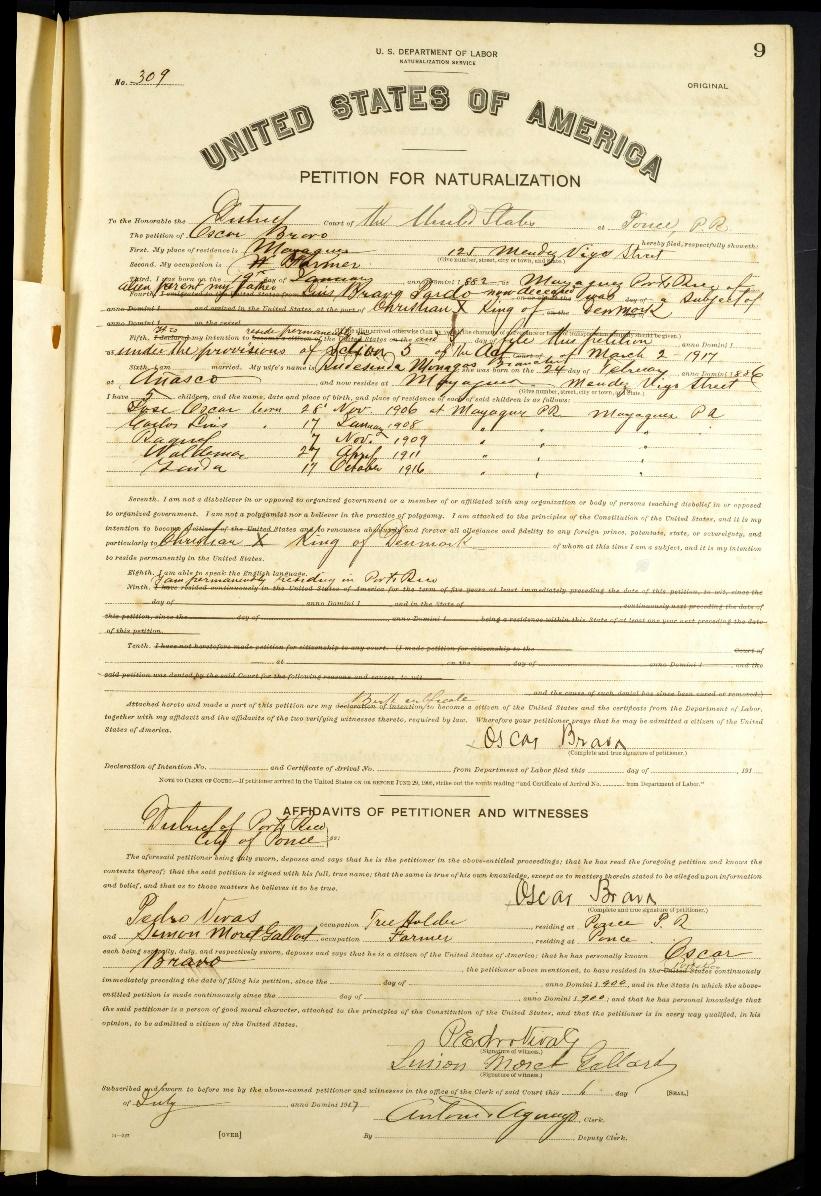 9
U. S. DEPARTMENT OF LABOR
NATURALIZATION SERVICE
No. 309
ORIGINAL
UNITED STATES OF AMERICA
PETITION FOR NATURALIZATION
To the Honorable the District Court of the United States at Ponce, P. R.
The petition of Oscar Bravo hereby filed, respectfully showeth:
First. My place of residence is Mayaguez 125 Mendez Vigo Street
(Give number, street, city or town, and State.)
Second. My occupation is Farmer
Third. I was born on the 19th day of January anno Domini 1882 at Mayaguez Porto Rico of
alien parent my father Luis Bravo Pardo now deceased was a subject of
Christian X King of Denmark
anno Domini 1 and arrived in the United States, at the port of
anno Domini 1 on the vessel
Fifth. reside permanently and file this petition
under the provisions of section 5 of the Act of March 2 - 1917
Sixth. I am married. My wife's name is Rudesinda Monagas she was born on the 24 day of February anno Domini 1886
at Anasco and now resides at Mayaguez Mendez Vigo Street
(Give number, street, city or town, and State.)
I have 5 children, and the name, date and place of birth, and place of residence of each of said children is as follows:
Jose Oscar born 28 Nov. 1906 at Mayaguez PR Mayaguez PR
Carlos Luis " 17 January 1908 " " "
Raquel 7 Nov. 1909 " " "
Waldemar 27 April 1911 " " "
17 October 1916 " " "
Seventh. I am not a disbeliever in or opposed to organized government or a member of or affiliated with any organization or body of persons teaching disbelief in or opposed
to organized government. I am not a polygamist nor a believer in the practice of polygamy. I am attached to the principles of the Constitution of the United States, and it is my
intention to become a citizen of the United States and to renounce absolutely and forever all allegiance and fidelity to any foreign prince, potentate, state, or sovereignty, and
particularly to Christian X King of Denmark of whom at this time I am a subject, and it is my intention
to reside permanently in the United States.
Eighth. I am able to speak the English language.
I am permanently residing in Porto Rico
Ninth. I have resided continuously in the United States of America for the term of five years at least immediately preceding the date of this petition, to wit, since the
day of anno Domini 1 and in the State of continuously next preceding the date of
this petition, since the day of anno Domini 1 being a residence within this State of at least one year next preceding the date
of this petition.
Tenth. I have not heretofore made petition for citizenship to any court. (I made petition for citizenship to the Court of
at on the day of anno Domini 1 and the
said petition was denied by the said Court for the following reasons and causes, to wit
and the cause of such denial has since been cured or removed.)
Birth certificate
Attached hereto and made a part of this petition are my declaration of intention to become a citizen of the United States and the certificate from the Department of Labor,
together with my affidavit and the affidavits of the two verifying witnesses thereto, required by law. Wherefore your petitioner prays that he may be admitted a citizen of the United
States of America.
Oscar Bravo
(Complete and true signature of petitioner.)
Declaration of Intention No. and Certificate of Arrival No. from Department of Labor filed this day of , 191
NOTE TO CLERK OF COURT.—If petitioner arrived in the United States ON OR BEFORE JUNE 29, 1906, strike out the words reading "and Certificate of Arrival No. from Department of Labor."
AFFIDAVITS OF PETITIONER AND WITNESSES
District of Porto Rico
City of Ponce ss:
The aforesaid petitioner being duly sworn, deposes and says that he is the petitioner in the above-entitled proceedings; that he has read the foregoing petition and knows the
contents thereof; that the said petition is signed with his full, true name; that the same is true of his own knowledge, except as to matters therein stated to be alleged upon information
and belief, and that as to those matters he believes it to be true.
Oscar Bravo
(Complete and true signature of petitioner.)
Pedro Vivas occupation Free Holder , residing at Ponce P. R
and Simon Moret Gallart occupation Farmer , residing at Ponce
each being severally, duly, and respectively sworn, deposes and says that he is a citizen of the United States of America; that he has personally known Oscar
Bravo , the petitioner above mentioned, to have resided in the United States continuously
immediately preceding the date of filing his petition, since the day of anno Domini 1900, and in the State in which the above-
entitled petition is made continuously since the day of anno Domini 1900; and that he has personal knowledge that
the said petitioner is a person of good moral character, attached to the principles of the Constitution of the United States, and that the petitioner is in every way qualified, in his
opinion, to be admitted a citizen of the United States.
Pedro Vivas
(Signature of witness.)
Simon Moret Gallart
(Signature of witness.)
Subscribed and sworn to before me by the above-named petitioner and witnesses in the office of the Clerk of said Court this day [SEAL.]
of July anno Domini 1917
Antonio Aguayo, Clerk.
[OVER] By , Deputy Clerk.